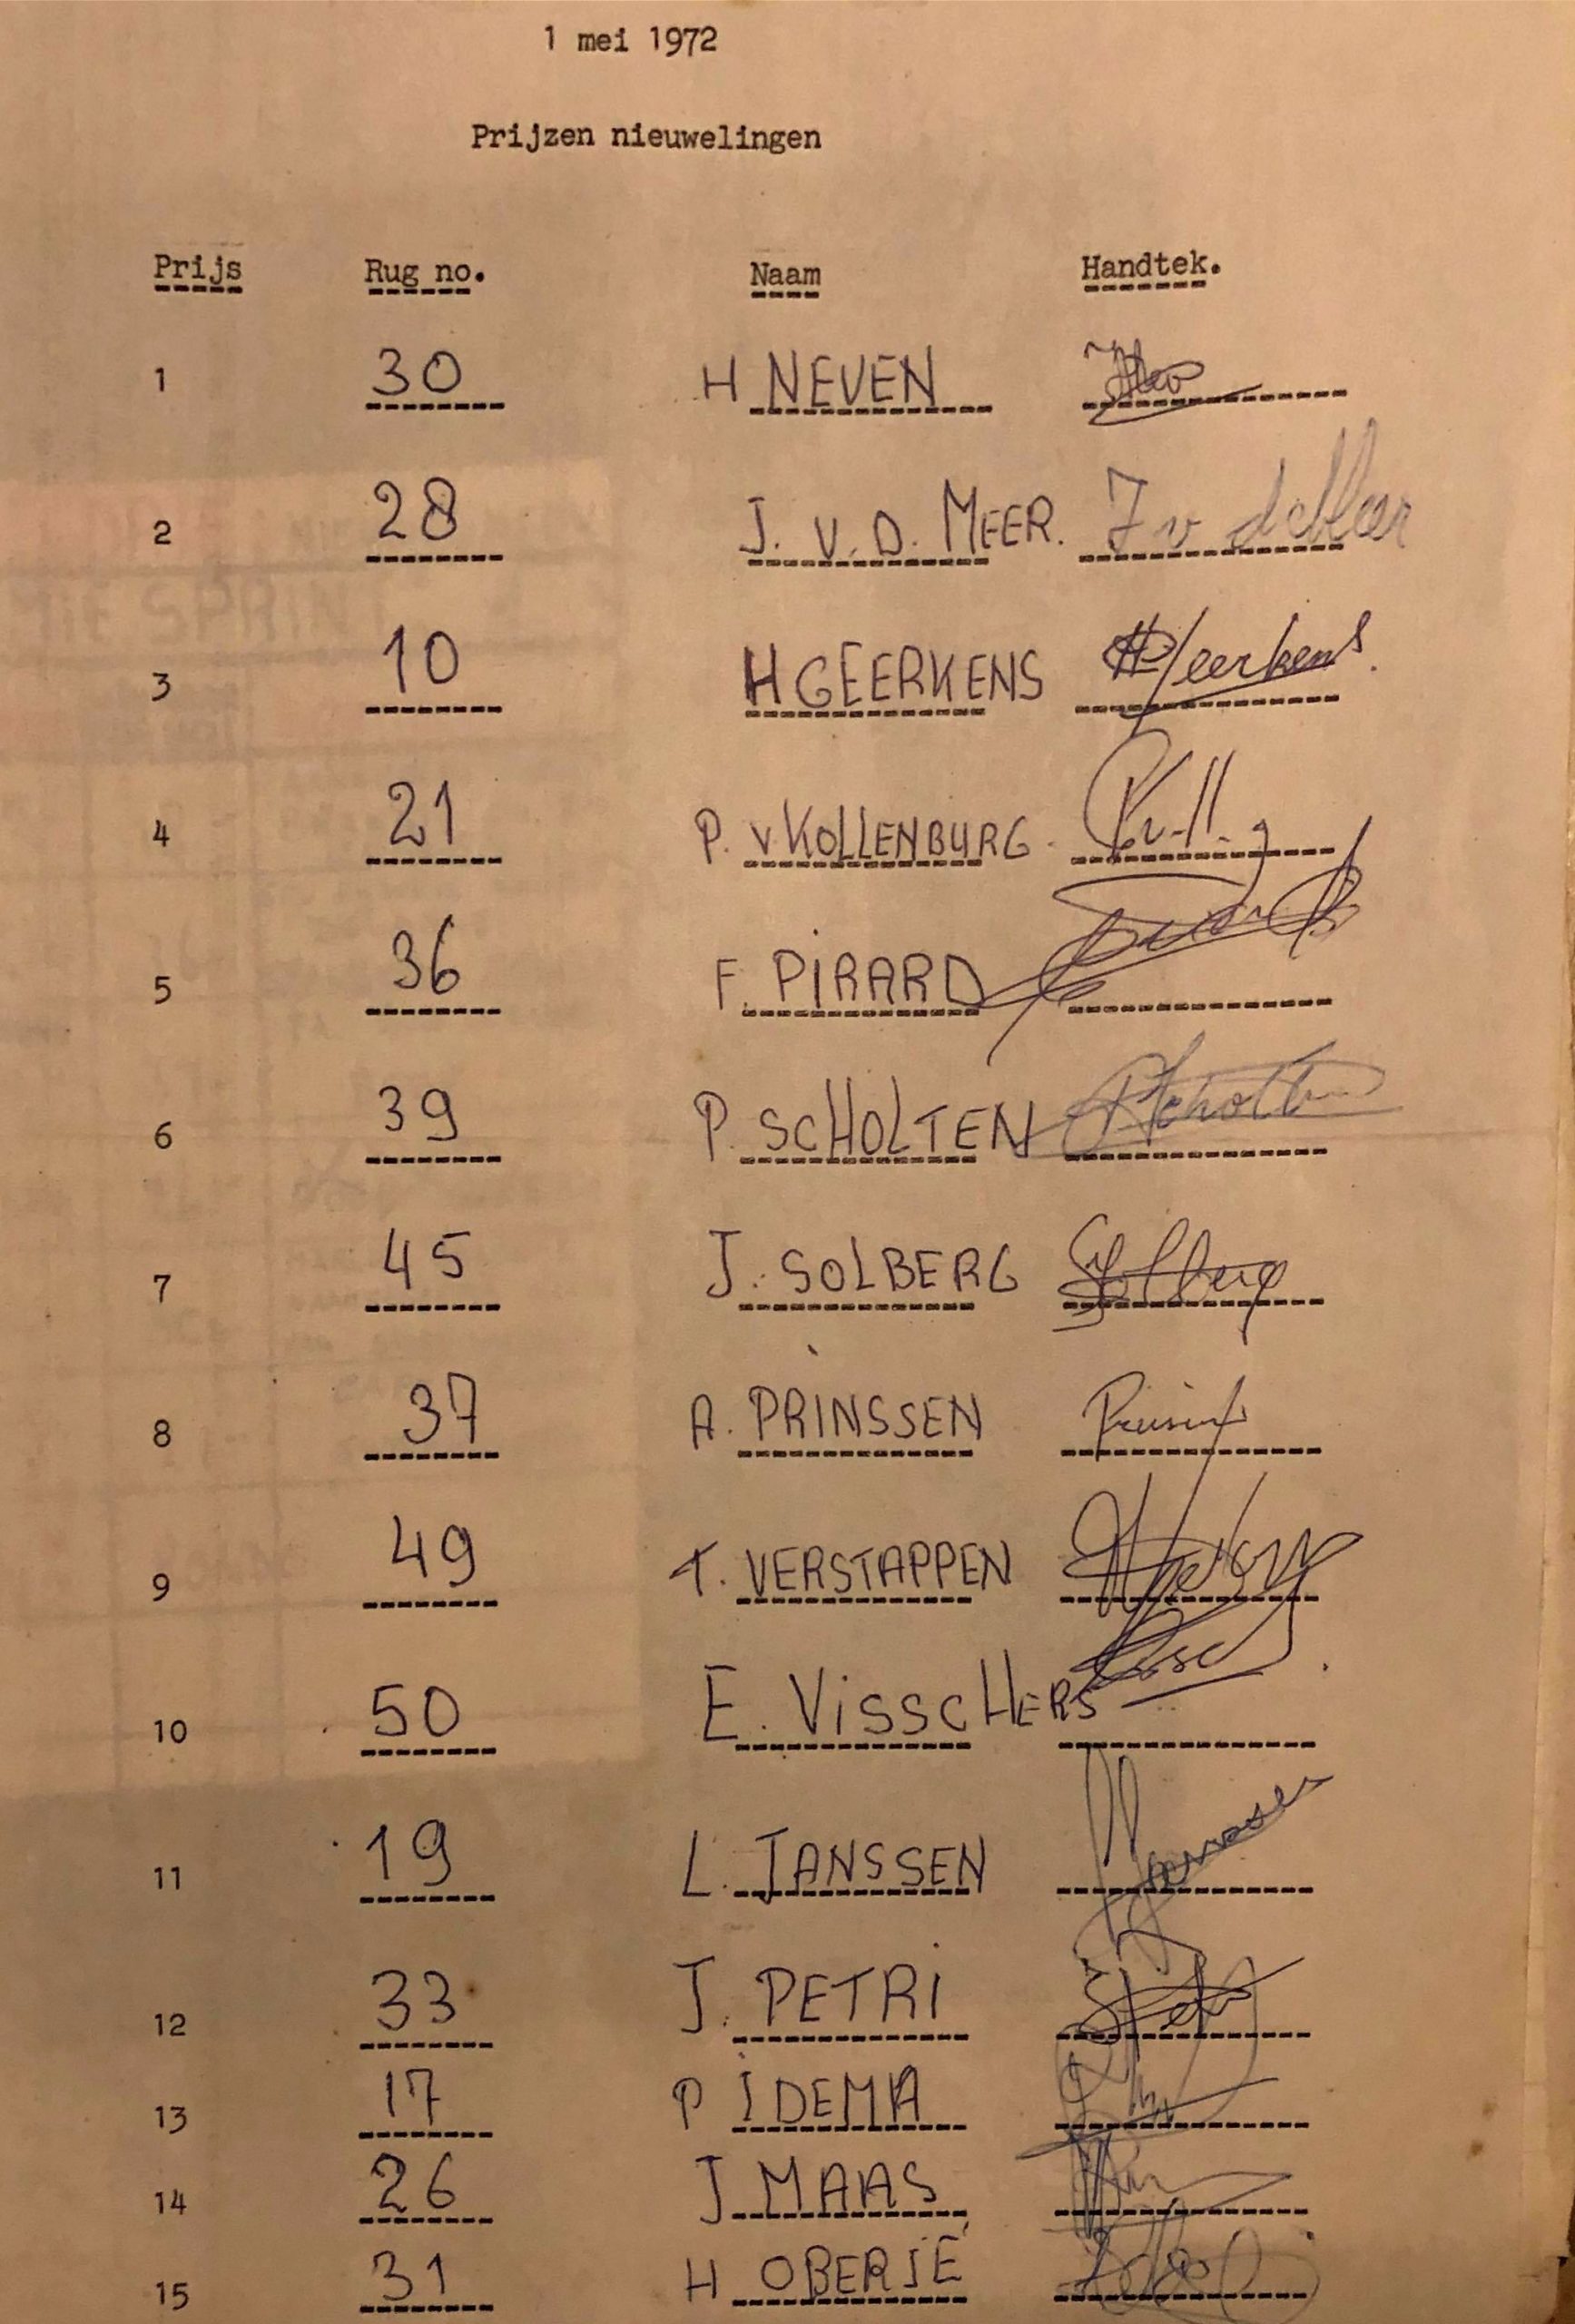 1 mei 1972
Prijzen nieuwelingen
Prijs Rug no. Naam Handtek.
1 30 H NEVEN
2 28 J. V. D. MEER. J v d Meer
3 10 H GEERKENS H Geerkens
4 21 P. v KOLLENBURG
5 36 F. PIRARD
6 39 P. SCHOLTEN P Scholten
7 45 J. SOLBERG Solberg
8 37 A. PRINSSEN
9 49 T. VERSTAPPEN
10 50 E. VISSCHERS
11 19 L. JANSSEN Janssen
12 33 J. PETRI
13 17 P IDEMA
14 26 J MAAS
15 31 H OBERJÉ